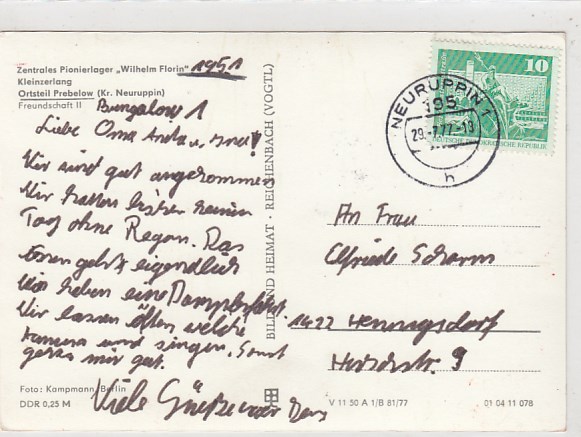 Zentrales Pionierlager „Wilhelm Florin" 1951
Kleinzerlang
Ortsteil Prebelow (Kr. Neuruppin)
Freundschaft II
Bungalow 1
Liebe Oma
Wir sind gut angekommen
Wir hatten bisher keinen
Tag ohne Regen. Das
Essen geht eigendlich
Wir haben eine Dampferfahrt.
Wir lassen öfters welche
und singen. Sonst
mir gut.
Viele Grüße
Foto: Kampmann, Berlin
DDR 0,25 M
BILD UND HEIMAT · REICHENBACH (VOGTL)
V 11 50 A 1/B 81/77
01 04 11 078
NEURUPPIN 1
195
29.-7.77-19
h
10
DEUTSCHE DEMOKRATISCHE REPUBLIK
An Frau
Elfriede Scharm
1422 Hennigsdorf
9